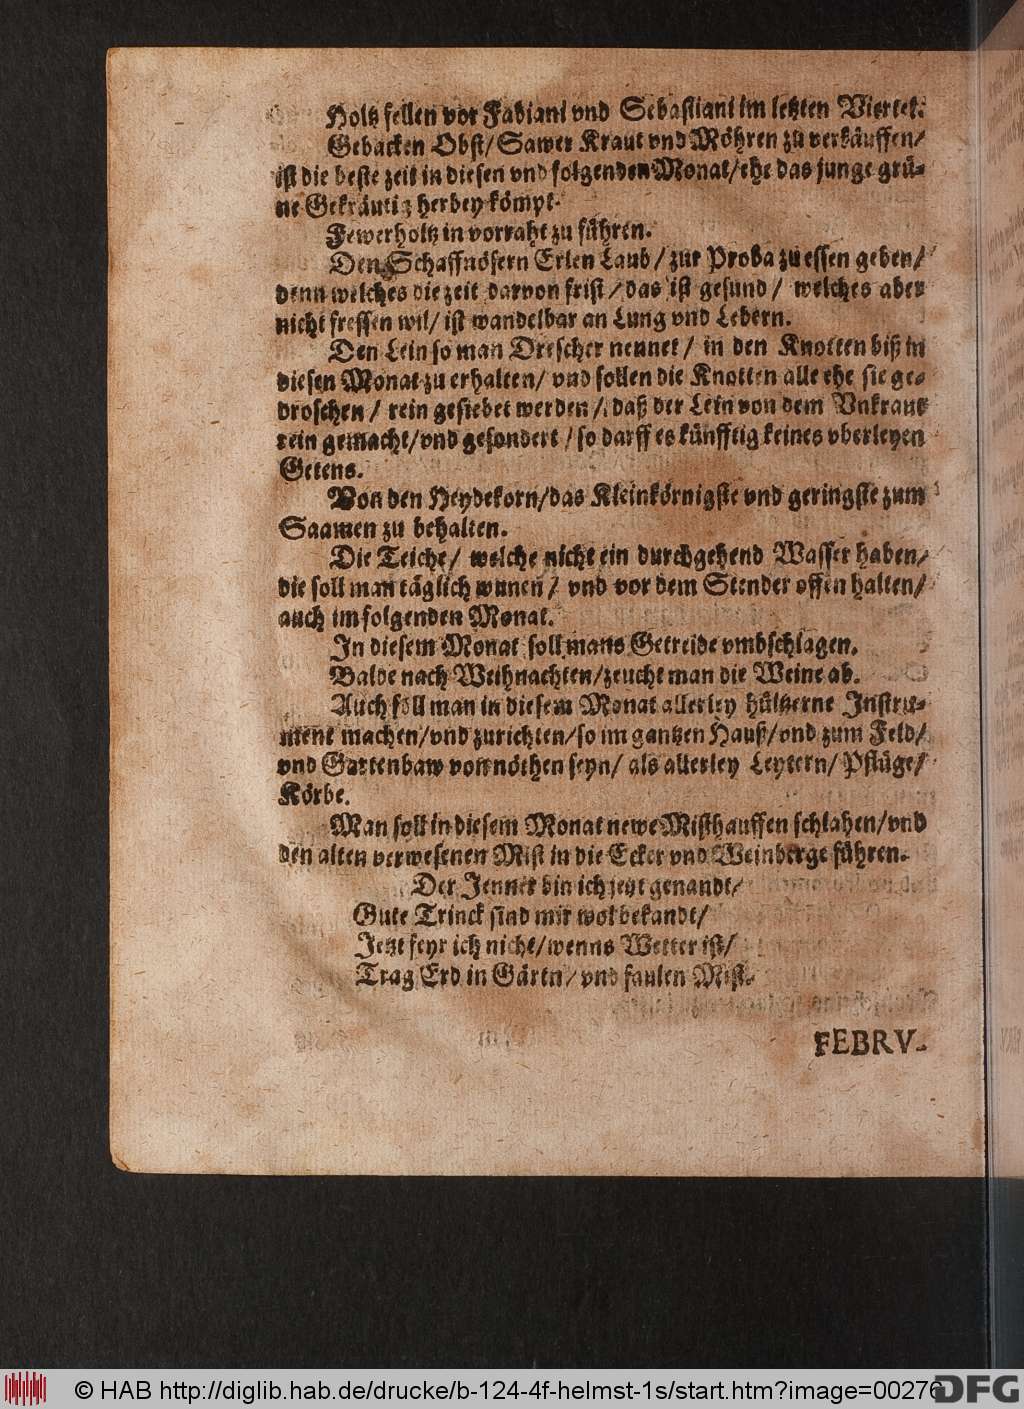 Holtz fellen vor Fabiani vnd Sebastiani im letzten Viertel.
Gebacken Obst/ Sawer Kraut vnd Möhren zu verkäuffen/
ist die beste zeit in diesen vnd folgenden Monat/ ehe das junge grü-
ne Gekräutig herbey kömpt.
Fewerholtz in vorraht zu führen.
Den Schaffnösern Erlen Laub/ zur Proba zu essen geben/
denn welches die zeit darvon frist/ das ist gesund/ welches aber
nicht fressen wil/ ist wandelbar an Lung vnd Lebern.
Den Lein so man Drescher nennet/ in den Knotten biß in
diesen Monat zu erhalten/ vnd sollen die Knotten alle ehe sie ge-
droschen/ rein gesiebet werden/ daß der Lein von dem Vnkraut
rein gemacht/ vnd gesondert/ so darff es künfftig keines vberleyen
Getens.
Von den Heydekorn/ das Kleinkörnigste vnd geringste zum
Saamen zu behalten.
Die Teiche/ welche nicht ein durchgehend Wasser haben/
die soll man täglich wunen/ vnd vor dem Stender offen halten/
auch im folgenden Monat.
In diesem Monat soll mans Getreide vmbschlagen.
Balde nach Weihnachten/ zeucht man die Weine ab.
Auch soll man in diesem Monat allerley hültzerne Instru-
ment machen/ vnd zurichten/ so im gantzen Hauß/ vnd zum Feld/
vnd Gartenbaw von nöthen seyn/ als allerley Leytern/ Pflüge/
Körbe.
Man soll in diesem Monat newe Misthauffen schlahen/ vnd
den alten verwesenen Mist in die Ecker vnd Weinberge führen.
Der Jenner bin ich jeyt genandt/
Gute Trinck sind mir wol bekandt/
Jetzt feyr ich nicht/ wenns Wetter ist/
Trag Erd in Gärtn/ vnd faulen Mist.
FEBRV-
© HAB http://diglib.hab.de/drucke/b-124-4f-helmst-1s/start.htm?image=00276
DFG